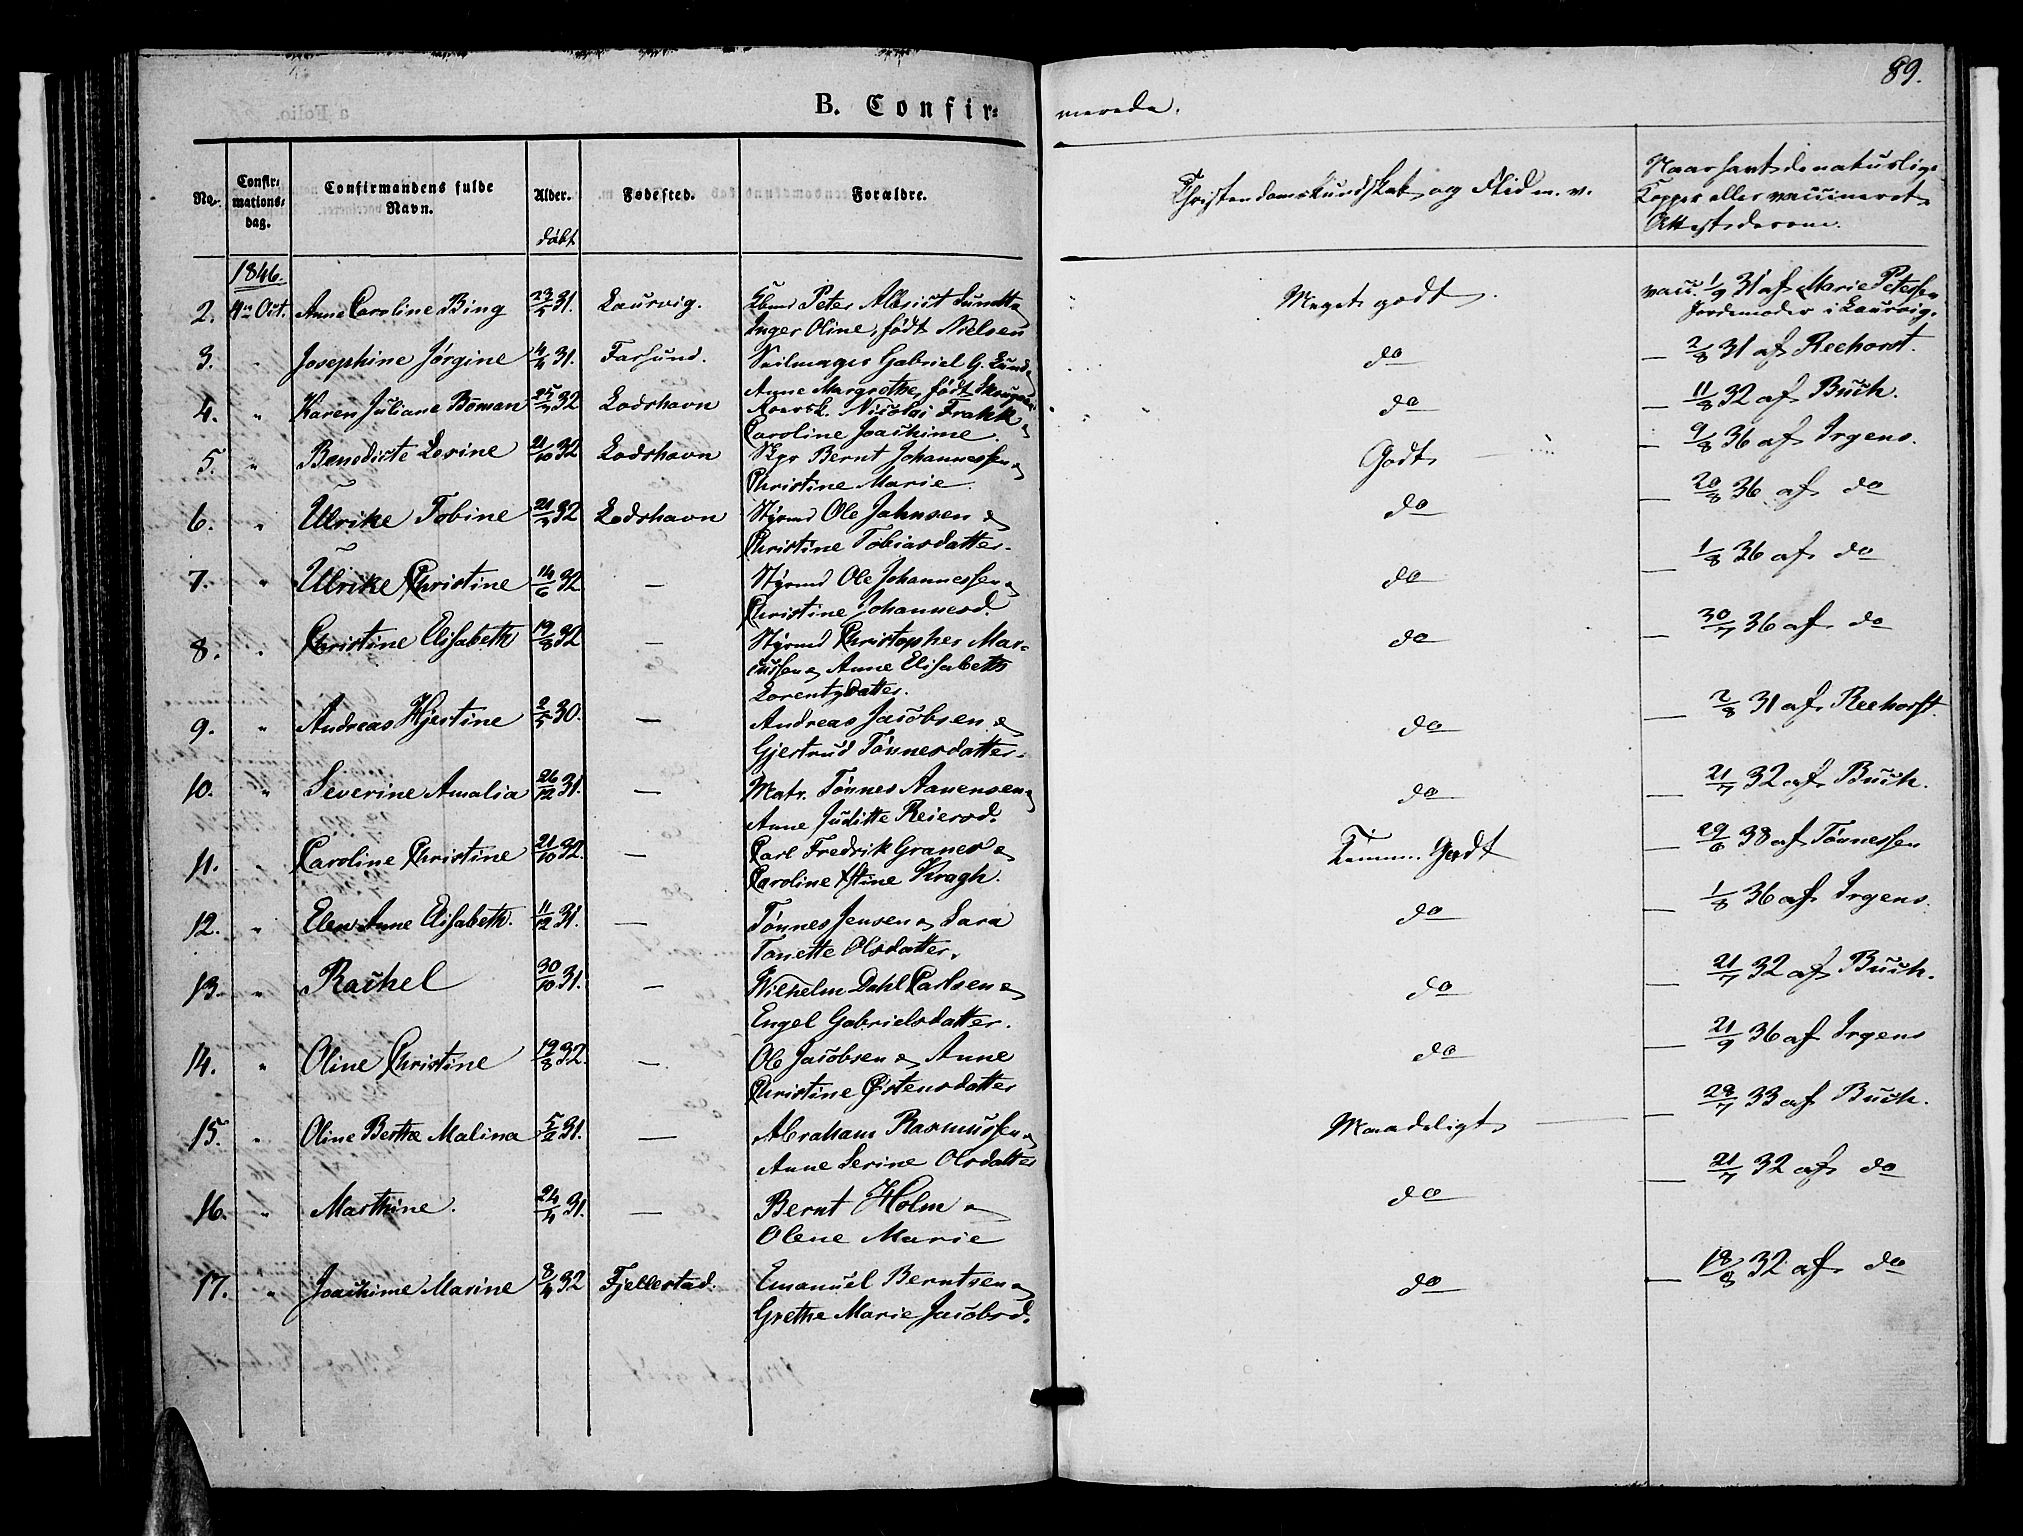 89.
B. Confir=
merede.
No. Confir= mations= dag. Confirmandens fulde Navn. Alder. døbt Fødested. Forældre. Christendomskundskab og Flid m. v. Naar havt de naturlige Kopper eller vaccineret, Attest derom.
1846.
2. 4de Oct. Anne Caroline Bing 23/5 31. Laurvig. Peter Albrist Inger Oline, født Nielsen Meget godt. vacc. 1/9 31 af Marie Petersen Jordemoder i Laurvig.
3. " Josephine Jørgine 4/4 31. Farsund. Seilmager Gabriel G. Lund & Anne Margrethe, født do — 2/8 31 af Reehorst.
4. " Karen Juliane Boman 25/7 32 Lodshavn Nicolai Frakk & Caroline Joachime. do — 11/8 32 af Buch.
5. " Benedicte Levine 21/10 32 Lodshavn Skpr Bernt Johannessen & Christine Marie Godt — 9/8 36 af Irgens.
6. " Ulrike Tobine 21/7 32 Lodshavn Styrmd Ole Jahnsen & Christine Tobiasdatter. do — 20/8 36 af do
7. " Ulrike Christine 14/6 32 — Styrmd Ole Johannessen & Christine Johannesd. do — 1/8 36 af do
8. " Christine Elisabeth 19/8 32 — Styrmd Christopher Marcussen & Anne Elisabeth Lorentzdatter. do — 30/7 36 af do
9. " Andreas Hjertine 2/5 30. — Andreas Jacobsen & Gjertrud Tønnesdatter. do — 2/8 31 af Reehorst.
10. " Severine Amalia 26/12 31. — Matr. Tønnes Aanensen & Anne Juditte Reiersd. do — 21/7 32 af Buch.
11. " Caroline Christine 21/10 32. — Carl Fredrik Graner & Caroline Stine Kragh. Temm. Godt — 29/6 38 af Tønnessen
12. " Elen Anne Elisabeth. 11/12 31. — Tønnes Jensen & Sara Tonette Olsdatter. do — 1/8 36 af Irgens.
13. " Rachel 30/10 31. — Wilhelm Dahl Carlsen & Engel Gabrielsdatter. do — 21/7 32 af Buch.
14. " Oline Christine 19/8 32. — Ole Jacobsen & Anne Christine Østensdatter do — 21/9 36 af Irgens
15. " Oline Berthe Malina 5/2 31. — Abraham Rasmussen & Anne Serine Olsdatter Maadeligt — 28/7 33 af Buch.
16. " Marthine. 24/4 31. — Bernt Holm & Olene Marie do — 21/7 32 af do
17. " Joachime Marine 8/4 32 Fjellestad. Emanuel Berntsen & Grethe Marie Jacobsd. do — 18/8 32 af do